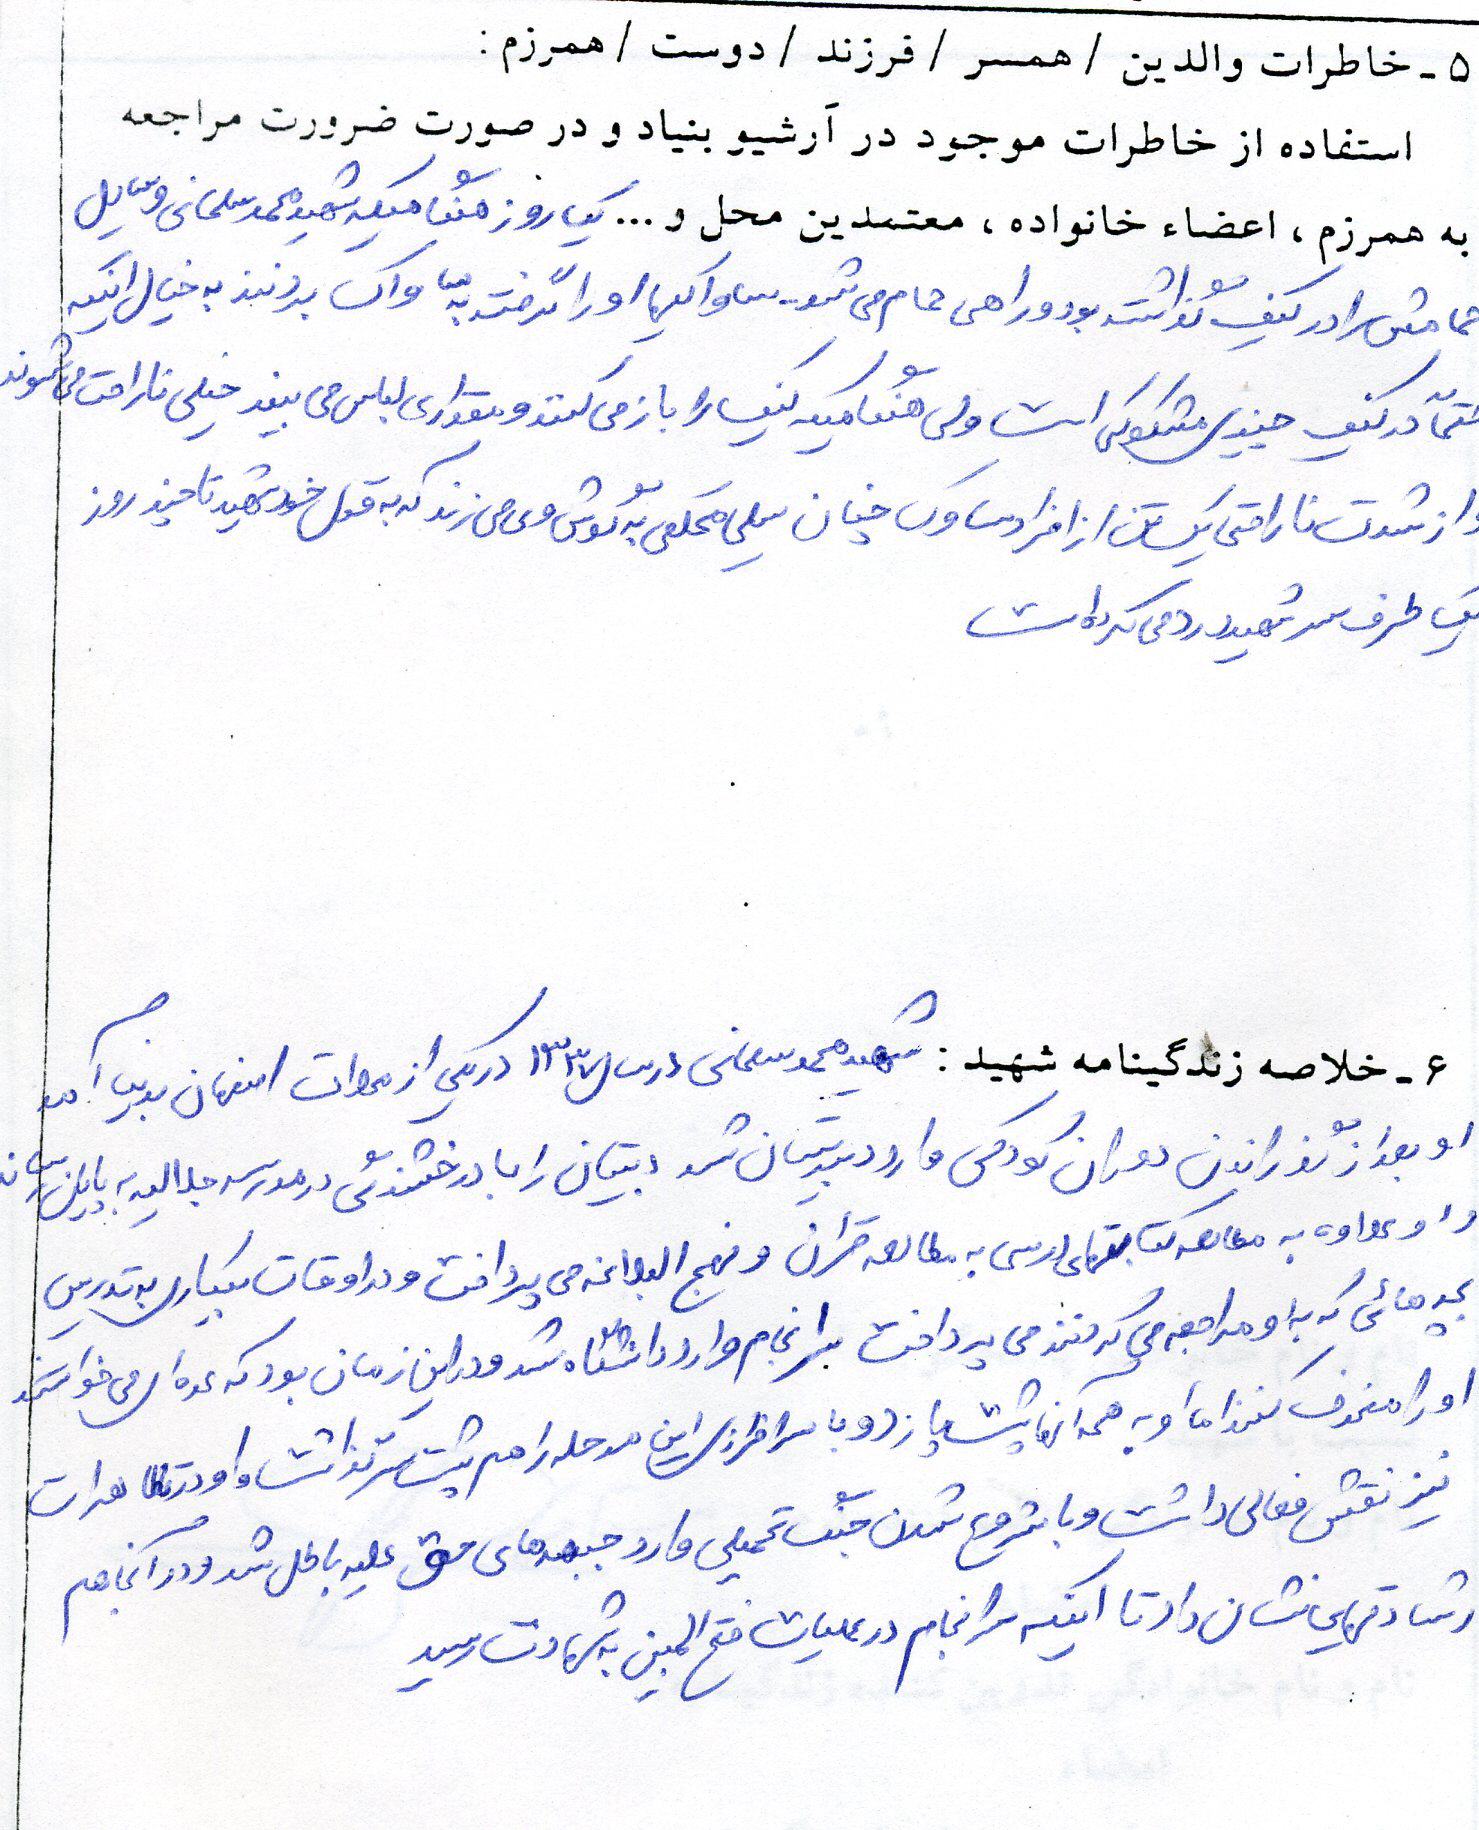 ۵ ـ خاطرات والدین / همسر / فرزند / دوست / همرزم :
استفاده از خاطرات موجود در آرشیو بنیاد و در صورت ضرورت مراجعه
به همرزم ، اعضاء خانواده ، معتمدین محل و ... یک روز هنگامیکه شهید محمد سلمانی وسایل
حمامش را در کیف گذاشته بود و راهی حمام می شود ساواکیها او را گرفته به ساواک بردند به خیال اینکه
حتماً در کیف چیزی مشکوکی است ولی هنگامیکه کیف را باز می کنند و مقداری لباس می بینند خیلی ناراحت می شوند
و از شدت ناراحتی یک تن از افراد ساواک چنان سیلی محکمی به گوش وی می زند که به قول خود شهید تا چند روز
یک طرف سر شهید درد می کرده است
۶ ـ خلاصه زندگینامه شهید : شهید محمد سلمانی در سال ۱۳۳۷ در یکی از محلات اصفهان بدنیا آمد
او بعد از گذراندن دوران کودکی وارد دبستان شد دبستان را با درخشندگی در مدرسه جلالیه به پایان رساند
و او علاوه به مطالعه کتابهای درسی به مطالعه قرآن و نهج البلاغه می پرداخت و در اوقات بیکاری به تدریس
بچه هائی که به او مراجعه می کردند می پرداخت سرانجام وارد دانشگاه شد و در این زمان بود که عده ای می خواستند
او را منحرف کنند اما او به همه آنها پشت پا زد و با سرافرازی این مرحله را هم پشت سر گذاشت و او در تظاهرات
نیز نقش فعالی داشت و با شروع شدن جنگ تحمیلی وارد جبهه های حق علیه باطل شد و در آنجا هم
رشادتهایی نشان داد تا اینکه سرانجام در عملیات فتح المبین به شهادت رسید